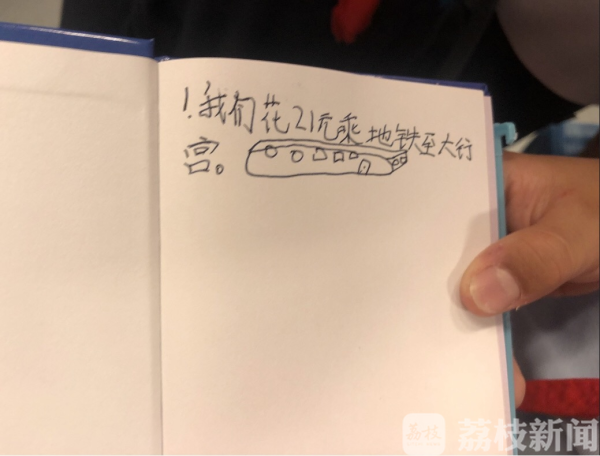 1.我们花21元乘地铁至大行
宫。
荔枝 荔枝新闻